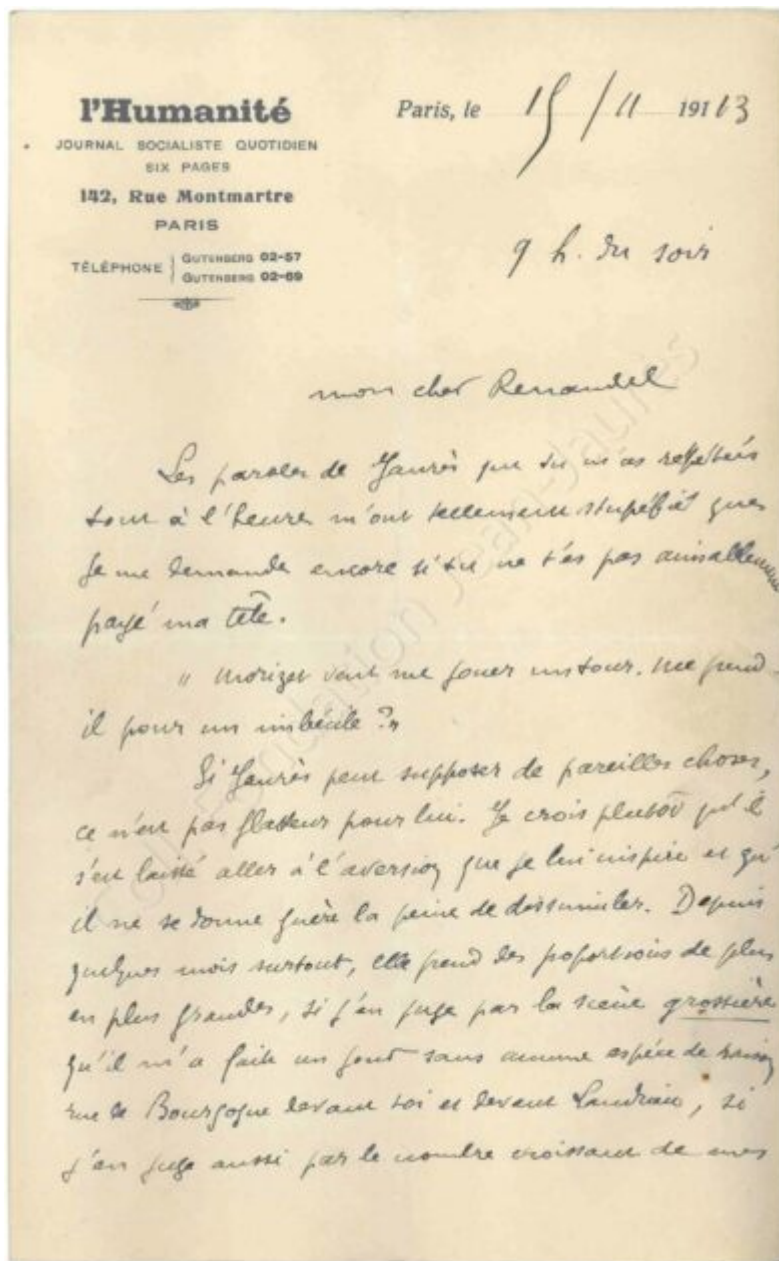 l'Humanité
JOURNAL SOCIALISTE QUOTIDIEN
SIX PAGES
142, Rue Montmartre
PARIS
TÉLÉPHONE GUTENBERG 02-57
GUTENBERG 02-69
Paris, le 15/11 1913
9 h. du soir
mon cher Renaudel
Les paroles de Jaurès que tu m'as répétées
tout à l'heure m'ont tellement stupéfié que
je me demande encore si tu ne t'es pas aimablement
payé ma tête.
" Morizet veut me jouer un tour. Me prend-
il pour un imbécile ? "
Si Jaurès peut supposer de pareilles choses,
ce n'est pas flatteur pour lui. Je crois plutôt qu'il
s'est laissé aller à l'aversion que je lui inspire et qu'
il ne se donne guère la peine de dissimuler. Depuis
quelques mois surtout, elle prend des proportions de plus
en plus grandes, si j'en juge par la scène grossière
qu'il m'a faite un jour sans aucune espèce de raison
rue de Bourgogne devant toi et devant Landrieu, si
j'en juge aussi par le nombre croissant de mes
Coll. Fondation Jean-Jaurès